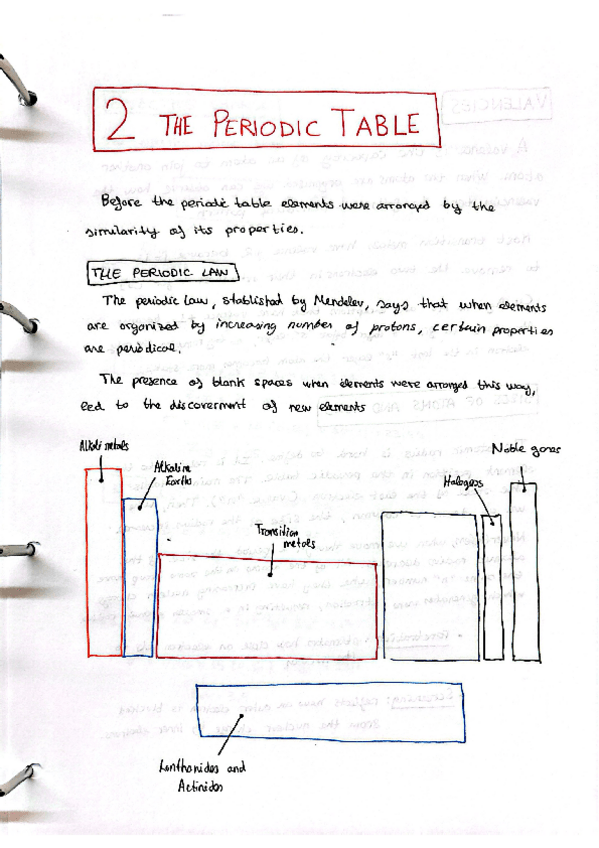 2 THE PERIODIC TABLE
Before the periodic table elements were arranged by the
similarity of its properties.
THE PERIODIC LAW
The periodic law, stablished by Mendelev, says that when elements
are organized by increasing number of protons, certain properties
are periodical.
The presence of blank spaces when elements were arranged this way,
led to the discoverment of new elements
Alkali metals
Alkaline
Earths
Transition
metals
Halogens
Noble gases
Lanthanides and
Actinides